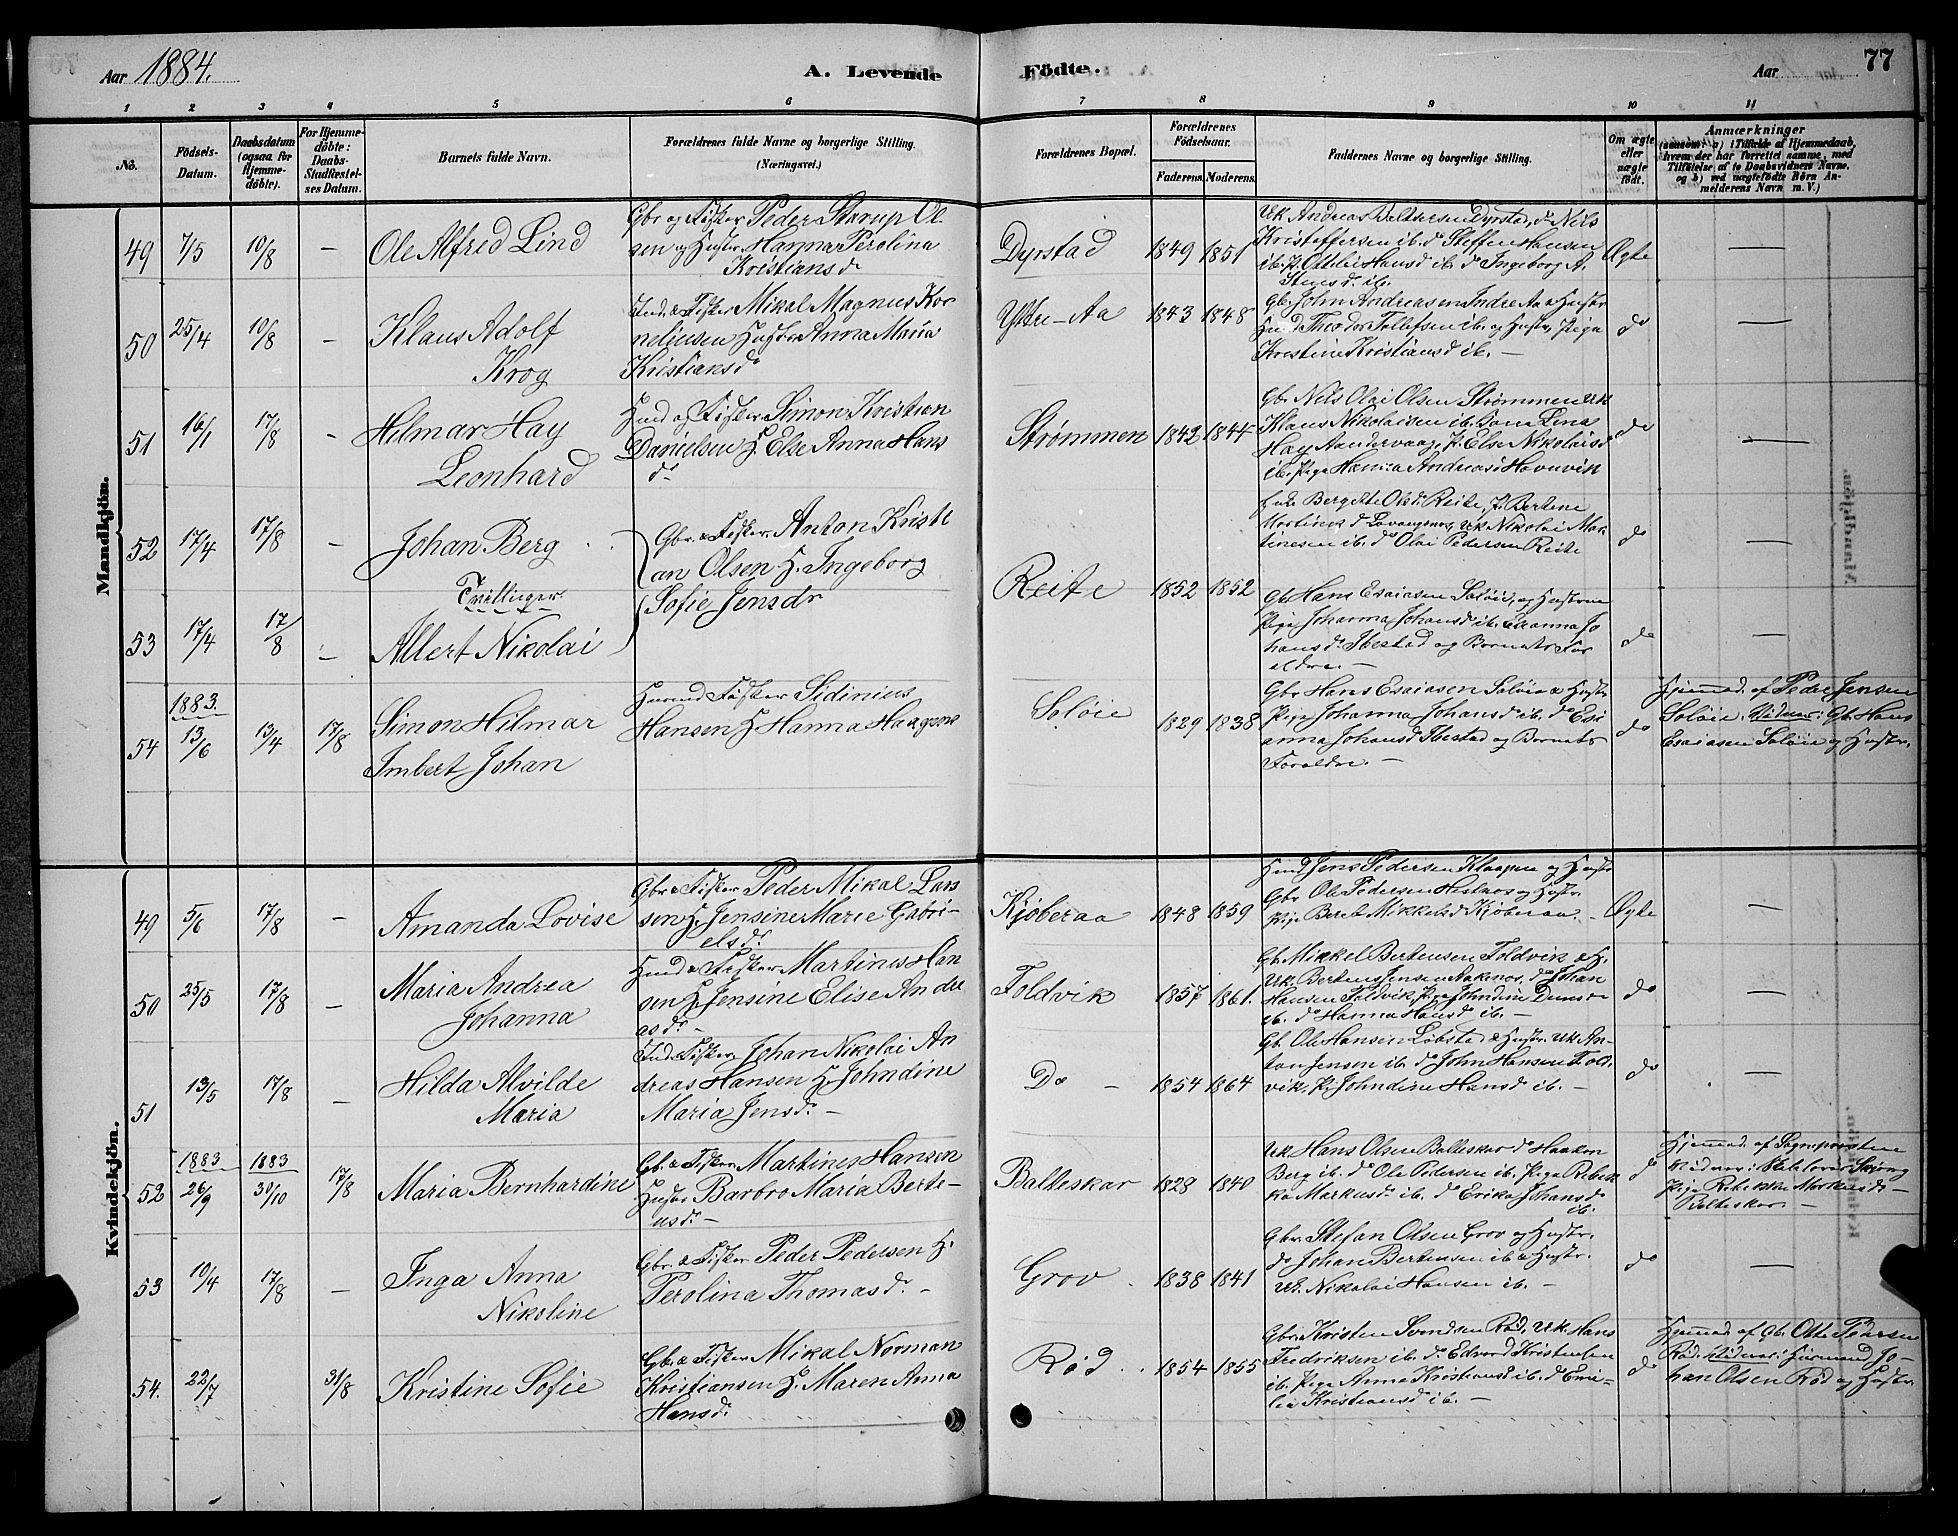 Aar 1884.
A. Levende Födte.
Aar
77
1 2 3 4 5 6 7 8 9 10 11
No.
Födsels-Datum.
Daabsdatum (ogsaa for Hjemmedöbte).
For Hjemmedöbte: Daabs-Stadfæstelses Datum.
Barnets fulde Navn.
Forældrenes fulde Navne og borgerlige Stilling. (Næringsvei.)
Forældrenes Bopæl.
Forældrenes Födselsaar.
Faderens. Moderens.
Faddernes Navne og borgerlige Stilling.
Om ægte eller uægte födt.
Anmærkninger
(saasom: a) i Tilfælde af Hjemmedaab, hvem der har forrettet samme, med Tilföielse af to Daabsvidners Navne, og b) ved uægtefödte Börn Anmelderens Navn m. V.)
Mandkjön.
49 7/5 10/8 – Ole Alfred Lind
Gbr og Fisker Peder Starup Ol-
sen og Hustr. Hanna Perolina
Kristiansd
Dyrstad 1849 1851
Uk Andreas Baltsersen Dyrstad, do Nils
Kristoffersen ib. do Steffen Hansen
ib. P. Ottelie Hansd ib. do Ingeborg A.
Stensd. ib.
Ægte —
50 25/4 10/8 – Klaus Adolf
Krog
Ind. & Fisker Mikal Magnus Kor
neliusen Hustr Anna Maria
Kristiansdr
Yttre-Aa 1843 1848
Gb. John Andreasen Indre Aa & Hustr
Hmd Theodor Tollefsen ib. og Hustr, Pige
Kristine Kristiansd ib. –
do —
51 16/1 17/8 - Hilmar Hay
Leonhard
Hmd og Fisker Simon Kristian
Danielsen H. Else Anna Hans
dr
Strømmen 1842 1844
Gbr Nils Olai Olsen Strømmen Uk
Klaus Nikolaisen ib. Lina
Hay Aandervaag, P. Else Nikolaisd
ib. Pige Hanna Andreasd Havnvik
do —
52 17/4 17/8 – Johan Berg
Tvillinger
Gbr. & Fisker Anton Kristi
an Olsen H. Ingeborg
Sofie Jensdr
Reite 1852 1852
Bergitte Olsdr Reite, P. Bertine
Martinusd Lavangsnes, Uk Nikolai Mar
tinesen ib. do Olai Pedersen Reite
do —
53 17/4 17/8 – Albert Nikolai
Gb. Hans Esaiasen Soløie, og Hustrue
Pige Johanna Johansd ib. Esianna Jo
hansdr. Ibestad og Barnets For
eldre. –
do —
1883.
54 13/6 13/4 17/8 Simon Hilmar
Imbert Johan
Fisker Sidinius
Hansen H Hanna Haagens
Soløie 1829 1838
Gbr Hans Esaiasen Soløie & Hustr
Pige Johanna Johansd ib. do Esi
anna Johansd Ibestad og Barnets
Foraldre. –
do
Hjemmed. af Peder Jensen
Soløie. Vidner: Gb. Hans
Esaiasen Soløie og Hustr.
Kvindekjön.
49 5/6 17/8 – Amanda Lovise
Gbr & Fisker Peder Mikal Lar
sen H. Jensine Marie Gabri-
elsdr.
Kjøberaa 1848 1859
Hmd Jens Pedersen og Hustr
Gbr. Ole Pedersen og Hustr.
Pige Berit Mikkelsd Kjøberaa. –
Ægte —
50 25/5 17/8 – Maria Andrea
Johanna
Hmd & Fisker Martines Han
sen H. Jensine Elise Andre
asdr –
Foldvik 1857 1861.
Gb. Mikkel Bertensen Foldvik & H.
Uk. Jensen do Johan
Hansen Foldvik, Pige Johndine
ib. do Hanna Hansd ib. –
do —
51 13/5 17/8 – Hilda Alvilde
Maria
Ind. Fisker Johan Nikolai An
dreas Hansen H. Johndine
Maria Jensdr. –
Do – 1854 1864
Gb. Ole Hansen Løbstad & Hustr. Uk An-
ton Jensen ib. do John Hansen Fold-
vik, P. Johndine Hansd ib. –
do —
1883 1883
52 26/9 30/10 17/8 Maria Bernhardine
Gb. & Fisker Martines Hansen
Hustr Barbro Maria Berte-
usdr. –
Balteskar 1828 1840
Uk Hans Olsen Balteskar do Haakon
Berg ib. do Ole Pedersen ib. Pige Rebek
ka Markusd ib. do Erika Johansd
ib.
do
Hjemmed. af Sognepresten
Vidner:
Pige Rebekka Markusd –
Balteskar. –
53 10/4 17/8 – Inga Anna
Nikoline
Gbr. & Fisker Peder Pedersen H.
Perolina Thomasdr. –
Grov 1838 1841
Gbr. Stefan Olsen Grov og Hustr.
do Johan Bertensen ib & Hustr.
Uk. Nikolai Hansen ib. –
do —
54. 22/7 31/8 Kristine Sofie
Gb. & Fisker Mikal Norman
Kristiansen H. Maren Anna
Hansdr.
Rød 1854 1855
Gbr. Kristen Svendsen Rød, Uk. Hans
Fredriksen ib. do Edvard Kristensen
ib. Pige Anne Kristiansd ib. do Emi-
lia Kristiansd ib. –
do
Hjemmed. af Gb. Otto Pedersen
Rød. Vidner: Jo-
han Olsen Rød og Hustr.